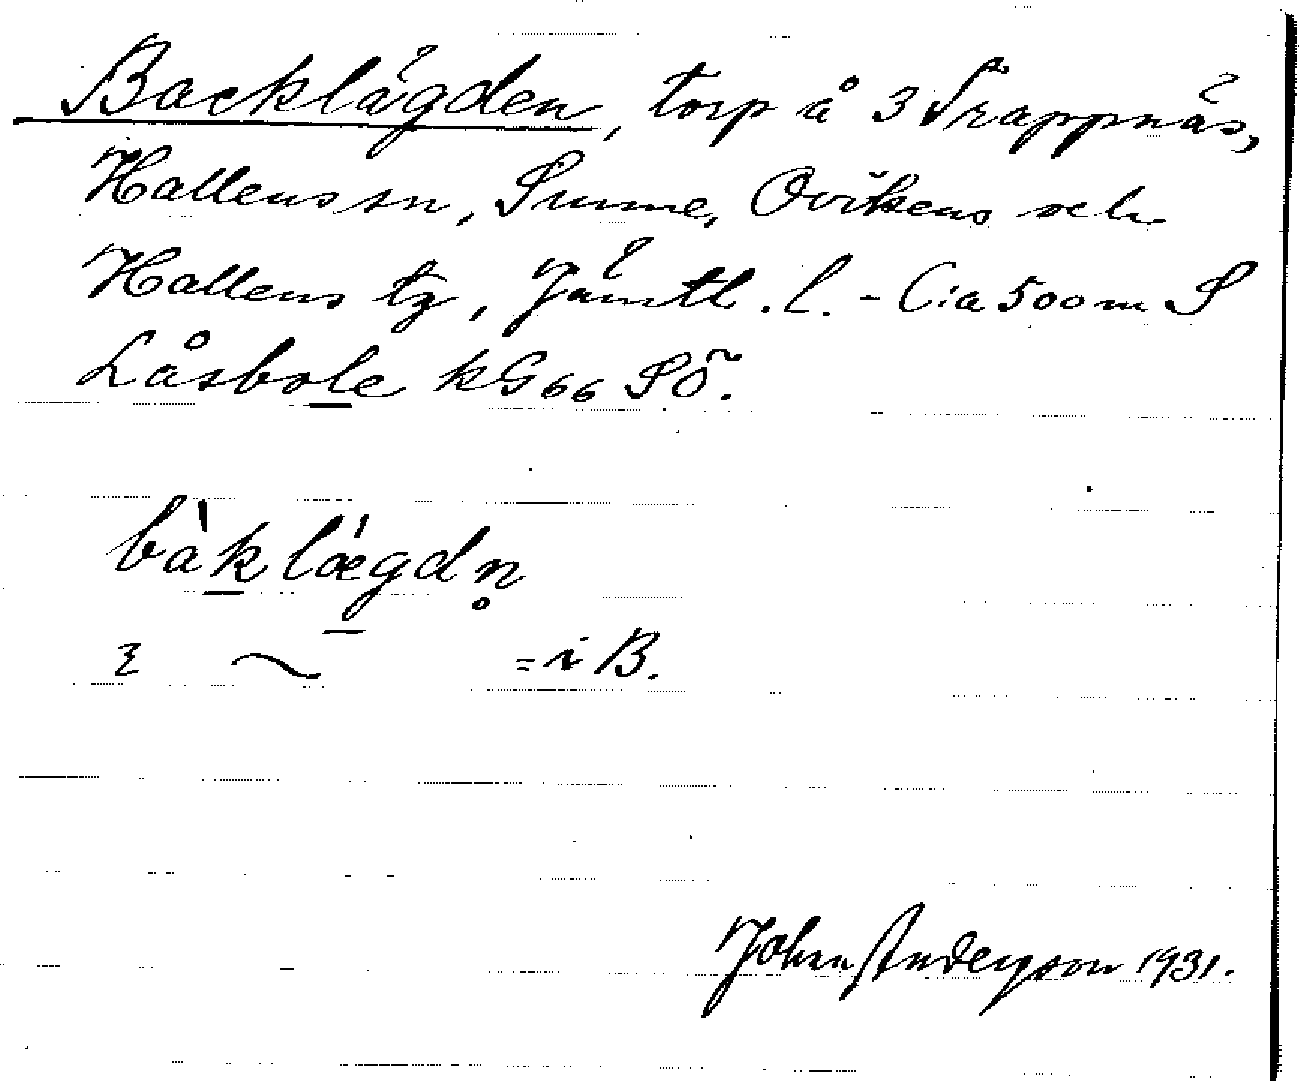 Backlägden, torp å 3 Trappnäs,
Hallens sn, Sunne, Ovikens och
Hallens tg, Jämtl. l. - C:a 500 m S
Låsböle kG66 SÖ.
bàklǽgdn̥
= i B.
John Anderson 1931.